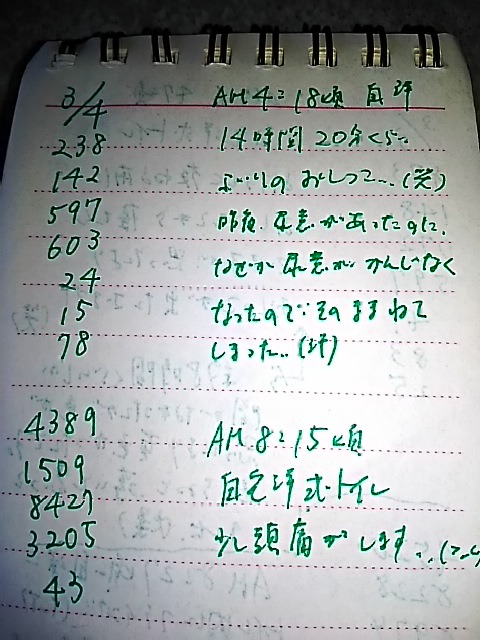 3/4 AM 4:18頃 自洋
238 14時間20分くらい
142 ぶりのおしっこ...(笑)
597 昨夜、尿意があったのに、
603 なぜか尿意がかんじなく
24
15 なったので、そのままねて
78 しまった..(汗)
4389 AM 8:15頃
1509 自宅洋式トイレ
8427
3205 少し頭痛がします...
43